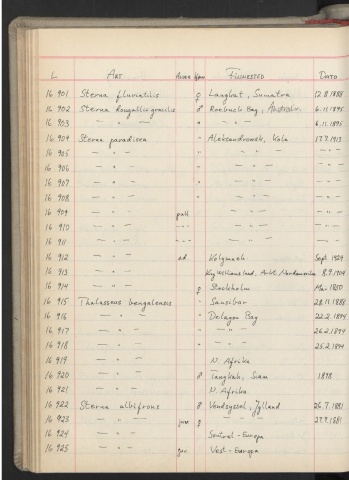 L ART ALDER KJØNN FINNESTED DATO
16 901 Sterna fluviatilis ♀ Langkat, Sumatra 12.8.1888
16 902 Sterna dougallii gracilis ♂ Roebuck Bay, Australien 6.11.1895
16 903 — " — " — " — 6.11.1895
16 904 Sterna paradisea " Aleksandrowsk, Kola 17.7.1913
16 905 — " — " — " — — " —
16 906 — " — " — " — — " —
16 907 — " — " — " — — " —
16 908 — " — " — " — — " —
16 909 — " — pull — " — — " —
16 910 — " — - " - — " — — " —
16 911 — " — - " - — " — — " —
16 912 — " — ad. Kolymach Sept. 1924
16 913 — " — King Williams land, Arkt. Nordamerika 8.9.1904
16 914 — " — ♀ Stockholm Mai 1850
16 915 Thalasseus bengalensis " Sansibar 28.11.1888
16 916 — " — " Delagoa Bay 22.2.1894
16 917 — " — " — " — 26.2.1894
16 918 — " — " — " — 25.2.1894
16 919 — " — N. Afrika
16 920 — " — ♂ Tangkah, Siam 1898
16 921 — " — N. Afrika
16 922 Sterna albifrons ♂ Vendsyssel, Jylland 26.7.1881
16 923 — " — juv ♀ — " — 27.7.1881
16 924 — " — Sentral-Europa
16 925 — " — juv. Vest-Europa